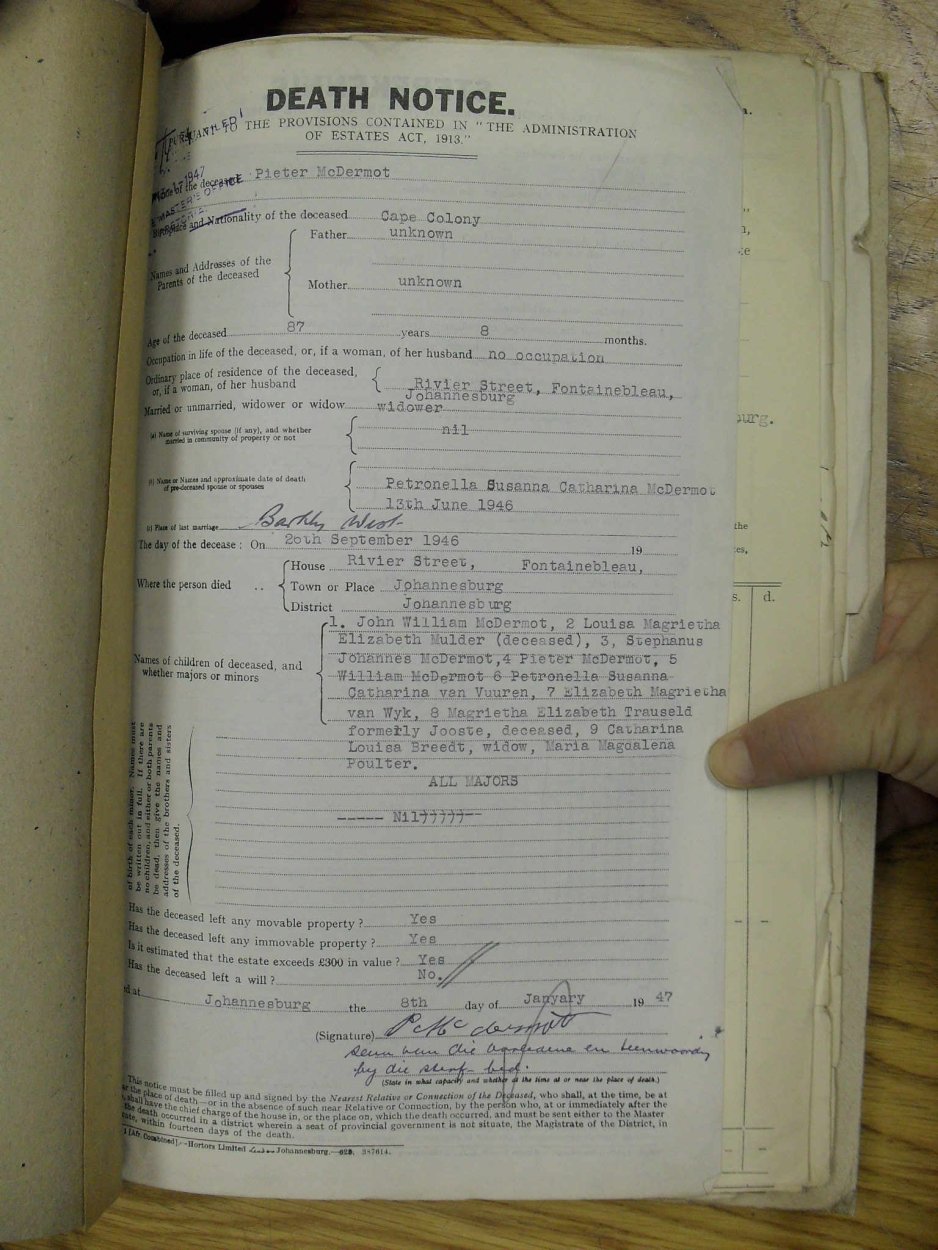 DEATH NOTICE.
PURSUANT TO THE PROVISIONS CONTAINED IN "THE ADMINISTRATION
OF ESTATES ACT, 1913."
1947
MASTER'S OFFICE
Name of the deceased Pieter McDermot
Birthplace and Nationality of the deceased Cape Colony
Names and Addresses of the
Parents of the deceased
Father unknown
Mother unknown
Age of the deceased 87 years 8 months.
Occupation in life of the deceased, or, if a woman, of her husband no occupation
Ordinary place of residence of the deceased,
or, if a woman, of her husband
Rivier Street, Fontainebleau,
Johannesburg
Married or unmarried, widower or widow widower
(a) Name of surviving spouse (if any), and whether
married in community of property or not
nil
(b) Name or Names and approximate date of death
of pre-deceased spouse or spouses
Petronella Susanna Catharina McDermot
13th June 1946
(c) Place of last marriage Barkly West
The day of the decease: On 26th September 1946 19
Where the person died ..
House Rivier Street, Fontainebleau,
Town or Place Johannesburg
District Johannesburg
Names of children of deceased, and
whether majors or minors
1. John William McDermot, 2 Louisa Magrietha
Elizabeth Mulder (deceased), 3, Stephanus
Johannes McDermot,4 Pieter McDermot, 5
William McDermot 6 Petronella Susanna
Catharina van Vuuren, 7 Elizabeth Magrietha
van Wyk, 8 Magrietha Elizabeth Trauseld
formerly Jooste, deceased, 9 Catharina
Louisa Breedt, widow, Maria Magdalena
Poulter.
ALL MAJORS
----- Nil
of birth of each minor. Names must
be written out in full. If there are
no children, and either or both parents
be dead, then give the names and
addresses of the brothers and sisters
of the deceased.
Has the deceased left any movable property? Yes
Has the deceased left any immovable property? Yes
Is it estimated that the estate exceeds £300 in value? Yes
Has the deceased left a will? No.
Johannesburg the 8th day of Janyary 19 47
(Signature) P McDermott
seun van die oorledene en teenwoordig
by die sterf-bed.
(State in what capacity and whether at the time at or near the place of death.)
This notice must be filled up and signed by the Nearest Relative or Connection of the Deceased, who shall, at the time, be at
the place of death—or in the absence of such near Relative or Connection, by the person who, at or immediately after the
shall have the chief charge of the house in, or the place on, which the death occurred, and must be sent either to the Master
the death occurred in a district wherein a seat of provincial government is not situate, the Magistrate of the District, in
within fourteen days of the death.
[Afr. Combined].—Hortors Limited Johannesburg. 387614.
urg.
the
s. d.